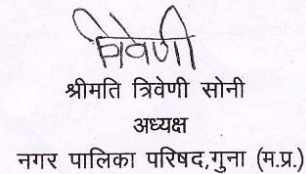 त्रिवेणी
श्रीमति त्रिवेणी सोनी
अध्यक्ष
नगर पालिका परिषद,गुना (म.प्र.)